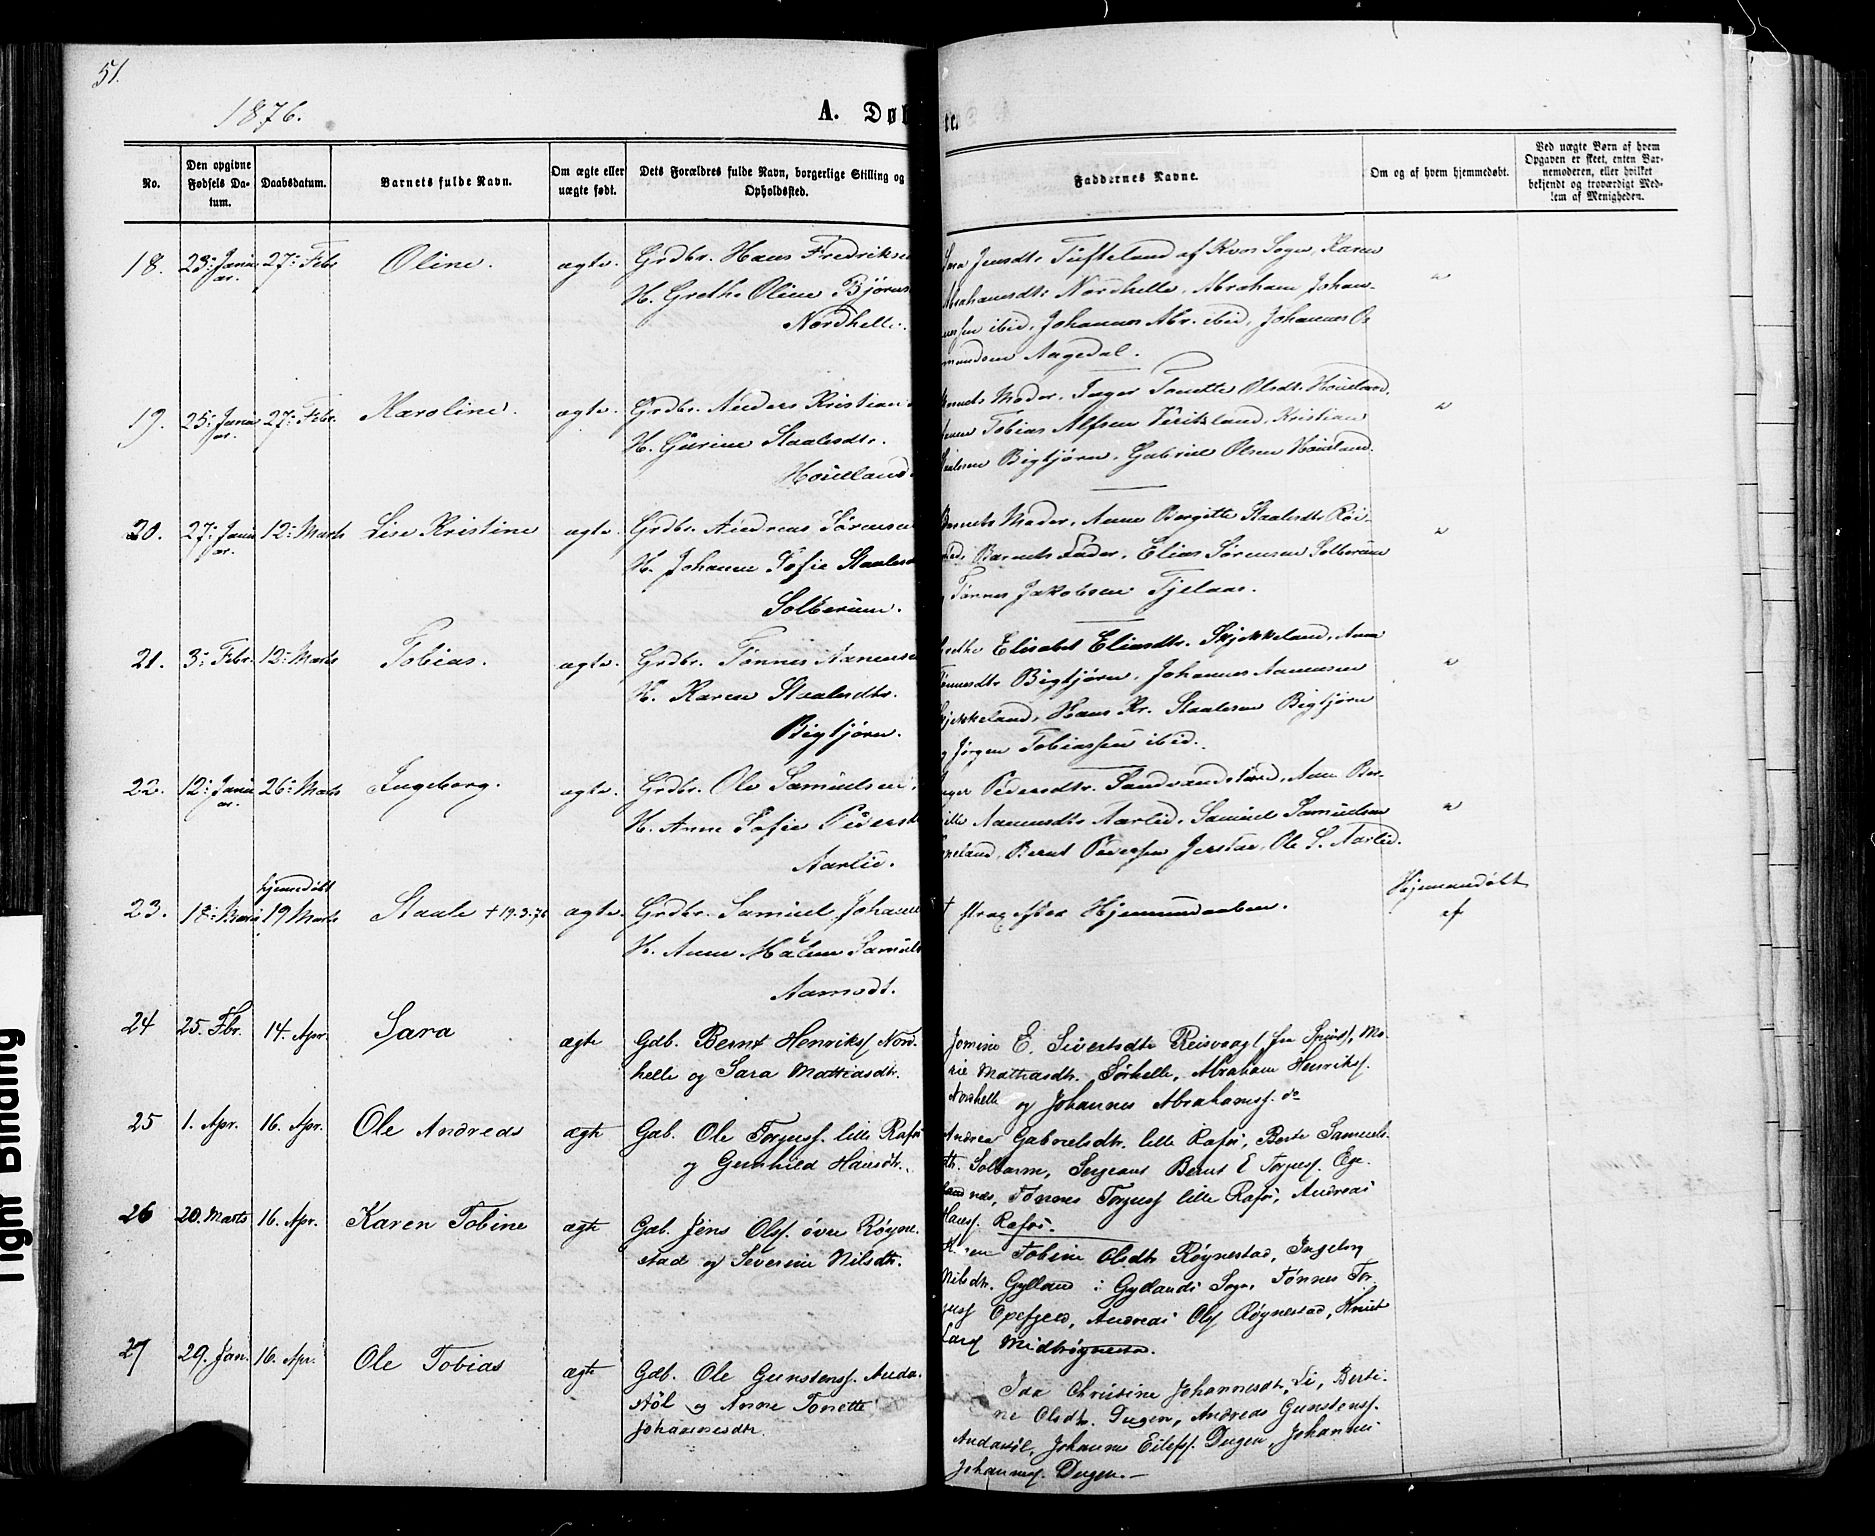 51.
1876.
A. Dø
te.
No.
Den opgivne Fødsels Datum.
Daabsdatum.
Barnets fulde Navn.
Om ægte eller uægte født.
Dets Forældres fulde Navn, borgerlige Stilling og Opholdssted.
Faddernes Navne.
Om og af hvem hjemmedøbt.
Ved uægte Børn af hvem Opgaven er skeet, enten Barnemoderen, eller hvilket bekjendt og troværdigt Medlem af Menigheden.
18. 23: Januar. 27: Febr Oline. ægte. Grdbr. Hans Fredriksen
H. Grethe Oline Bjørns
Nordhelle.
Sara Jensdtr. Tufteland af Kvas Sogn, Karen
Abrahamsdtr. Nordhelle, Abraham Johan-
nessen ibid, Johannes Abr. ibid, Johannes Os-
mundsen Aagedal.
19. 25: Januar. 27: Febr. Karoline. ægte. Grdbr. Anders Kristian
H. Gurine Staalesdtr.
Houeland.
Barnets Moder, Inger Tonette Olsdt. Houeland,
Tobias Alfsen, Kristian
Staalesen Bigtjørn, Gabriel Olsen Houeland.
20. 27: Januar. 12: Marts Lise Kristine ægte. Grdbr. Andreas Sørensen
H. Johanne Sofie Staalesd
Solberum.
Barnets Moder, Anne Bergitte Staalesdt.
Barnets Fader, Elias Sørensen Solberum
Tønnes Jakobsen Fjelaas.
21. 3: Febr. 12: Marts Tobias. ægte. Grdbr. Tønnes Aanensen
H. Karen Staalesdtr.
Bigtjørn.
Grethe Elisabet Eliasdtr. Skjekkeland, Anne
Tønnesdtr. Bigtjørn, Johannes Aanensen
Skjekkeland, Hans Kr. Staalesen Bigtjørn
og Jørgen Tobiassen ibid.
22. 12: Januar. 26: Marts Ingeborg. ægte. Grdbr. Ole Samuelsen
H. Anne Sofie Pedersd
Aarlie.
Inger Pedersdtr., Ane Ber-
gitte Aanensdtr Aarlie, Samuel Samuelsen
Bernt Pedersen Jerstad, Ole S. Aarlie.
23. 18: Marts hjemmedøbt 19 Marts Staale † 19.3.76 ægte. Grdbr. Samuel Johann
H. Anne Malene Samuels
Aamodt.
† strax efter Hjemmedaaben.
Hjemmedøbt
af
24 25. Fbr. 14. Apr. Sara ægte Gdb. Bernt Henriksf Nord-
helle og Sara Mattiasdtr.
Jomine E. Sivertsdtr Reisvaag, Ma-
rie Mathiasdtr. Sørhelle, Abraham Henriksf.
Nordhelle og Johannes Abrahamsf. do
25 1. Apr. 16. Apr. Ole Andreas ægte Gdb. Ole Torjusf. lille Rafos
og Gunhild Hansdtr.
Andrea Gabrielsdtr. lille Rafos, Berte Samuels-
dtr. Solbarm, Sergeant Bernt E Torgesf. Ege-
landnes, Tønnes Torjusf lille Rafos, Andreas
Hansf. Rafos.
26 20. Marts 16. Apr. Karen Tobine ægte Gdb. Jens Olsf. øvre Røyne-
stad og Severine Nilsdtr.
Karen Tobine Olsdtr Røynestad, Ingeborg
Nilsdtr. Gylland i Gyllands Sogn, Tønnes Tor-
jusf Oxefjeld, Andreas Olsf Røynestad, Knut
Larsf Midtrøynestad.
27 29. Jan. 16. Apr. Ole Tobias ægte Gdb. Ole Gunstensf. Anda-
støl og Anne Tonette
Johannesdtr.
Ida Christine Johannesdt, Li, Berti-
ne Olsdtr. Dugen, Andreas Gunstensf.
Andastøl, Johannes Eilefsf. Dugen, Johannes
Johannesf. Dugen.
Tight Binding